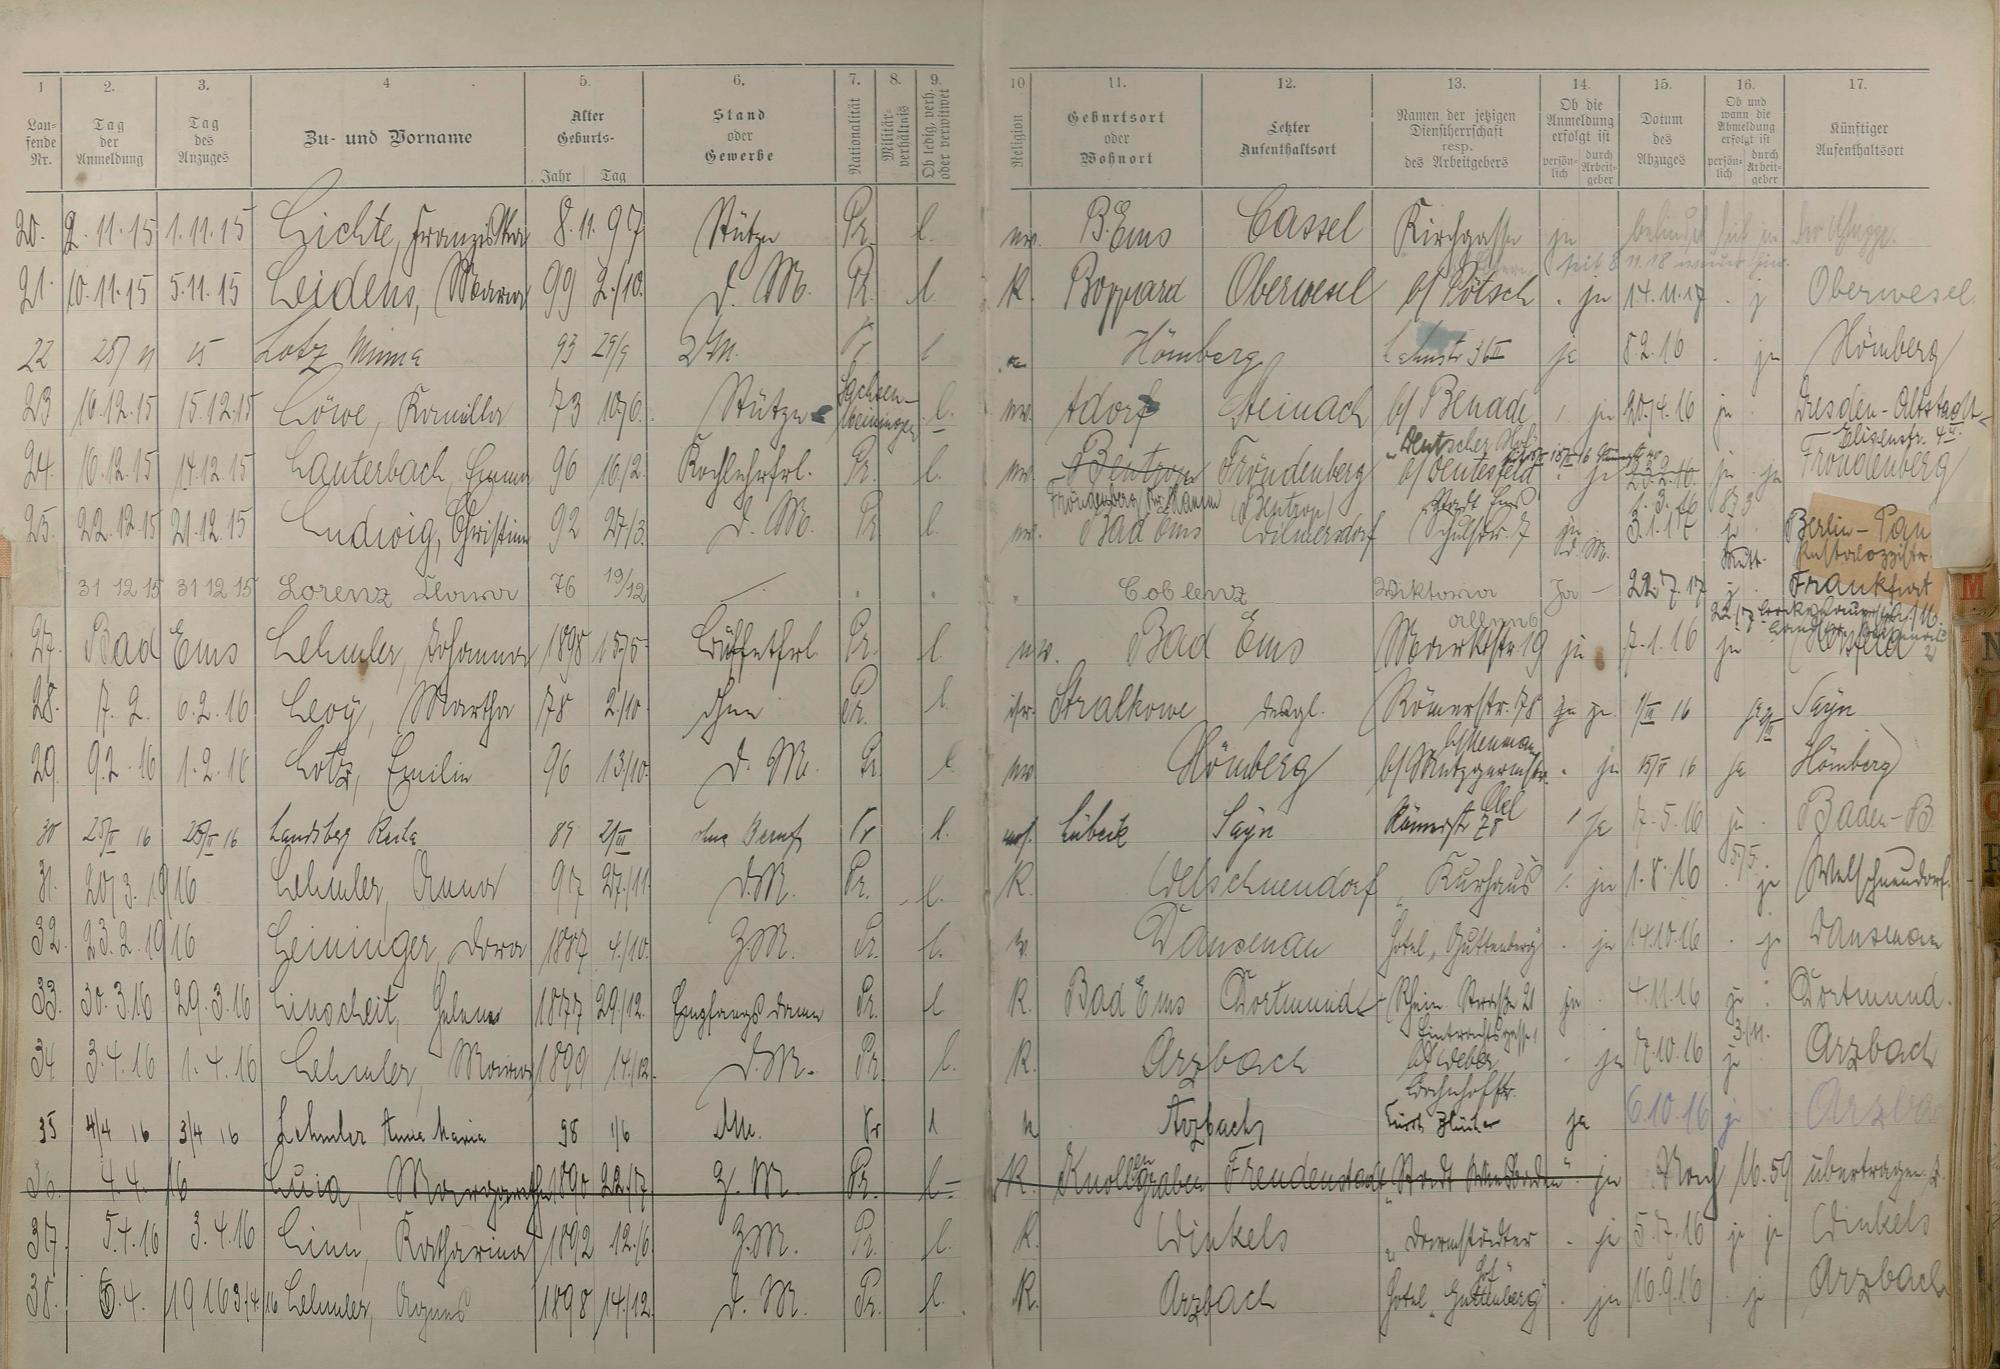 1 2. 3. 4 5. 6. 7. 8. 9. 10 11. 12. 13. 14. 15. 16. 17.
Lau-fende Nr. Tag der Anmeldung Tag des Anzuges Zu- und Vorname Alter Geburts- Jahr Tag Stand oder Gewerbe Nationalität Militär-verhältnis Ob ledig, verh. oder verwitwet Religion Geburtsort oder Wohnort Letzter Aufenthaltsort Namen der jetzigen Dienstherrschaft resp. des Arbeitgebers Ob die Anmeldung erfolgt ist persön-lich durch Arbeit-geber Datum des Abzuges Ob und wann die Abmeldung erfolgt ist persön-lich durch Arbeit-geber Künftiger Aufenthaltsort
20. 2.11.15 1.11.15 Lichte, Franziska 8.11. 97 Stütze Pr. l. B.Ems Cassel Kirchgasse ja
seit 8 11.18
21. 10.11.15 5.11.15 Leidens, Maria 99 2./10. d. M. Pr. l. K. Boppard Oberwesel b/ Pötsch . ja 14.11.17 . j Oberwesel.
22 25/11 15 Lotz Minna 93 29/9 Pr l Hömberg Lahnstr 36II ja 8.2.16 . ja Hömberg
23 16.12.15 15.12.15 Löwe, Kamilla 73 10/6. Stütze Sachsen-Meiningen l. Adorf Steinach b/ Benade ja 20./4.16 ja . Dresden-Altstadt
Elisenstr. 4
24. 16.12.15 14.12.15 Lauterbach, Emma 96 16/2. Kochlehrfrl. Pr. l. Bentrop Fröndenberg "Deutscher Hof" ja 23.2.16. ja ja Fröndenberg
Fröndenberg (Bentrop) Stadt Ems 1.3.16
25. 22.12.15 21.12.15 Ludwig, Christine 92 27/3. d. M. Pr. l. Bad Ems Wilmersdorf Schulstr. 7 ja 3.1.17 ja Berlin-Pan
Pestalozzistr.
31 12 15 31 12 15 Lorenz Klara 76 19/12 Coblenz Viktoria Ja - 22.7.17 j. Frankfurt
allee
27. Bad Ems Lehmler, Johanna 1898 15/5. Büffetfrl. Pr. l. Bad Ems Marktstr 19 ja 7.1.16 ja Hersfeld
28. 7. 2. 6.2.16 Levy, Martha 78 2./10. ohne Pr. l. isr. Stralkowo desgl. Römerstr. 78 ja ja. 1/III 16 Sayn
29. 9.2.16 1.2.16 Lotz, Emilie 96 13/10. d. M. Pr. l. Hömberg b/ Metzgermstr. . ja 15/V 16 ja Hömberg
30 25/II 16 25/II 16 Landsberg 89 21/III ohne Beruf Pr l. Lübeck Sayn Römerstr 78 ja 7.5.16 ja . Baden-B.
5/5.
31. 20/3.1916 Lehmler, Anna 97 27./11. d.M. Pr. l. K. Welschneudorf "Kurhaus ja 1.8.16 ja Welschneudorf.
32. 23.2.1916 Leininger, Dora 1887 4/10. Z.M. Pr. l. Dausenau Hotel "Guttenberg" . ja 14.10.16 . ja Dausenau
33. 30.3.16 29.3.16 Linscheit, Helene 1877 29./12. Empfangsdame Pr. l K. Bad Ems Dortmund Rhein. Strasse 21 ja . 4.11.16 ja . Dortmund.
Eintrachtsgasse 1 3/11.
34 3.4.16 1.4.16 Lehmler, Maria 1899 14./12. d.M. Pr. l. K. Arzbach b/ Weber . ja 17.10.16 ja Arzbach
35 4/4 16 3/4 16 Lehmler Anna Maria 98 1/6 d.M. Pr l Arzbach Fürst Blücher ja 6.10.16 ja
36. 4.4. 16 Luia, Margarethe 1890 22./7 Z. M. Pr. l. K. Knollengraben Freudenstadt "Stadt Wiesbaden" . ja Nach 16.59 übertragen.
37. 5.4.16 3.4.16 Linn, Katharina 1892 12./6. Z.M. Pr. l. K. Winkels "Darmstädter . ja 5.7.16 ja ja Winkels
Hof"
38. 6.4. 1916 3/4.16 Lehmler, Agnes 1898 14./12. d. M. Pr. l. K. Arzbach Hotel "Guttenberg" . ja 16.9.16 . ja Arzbach